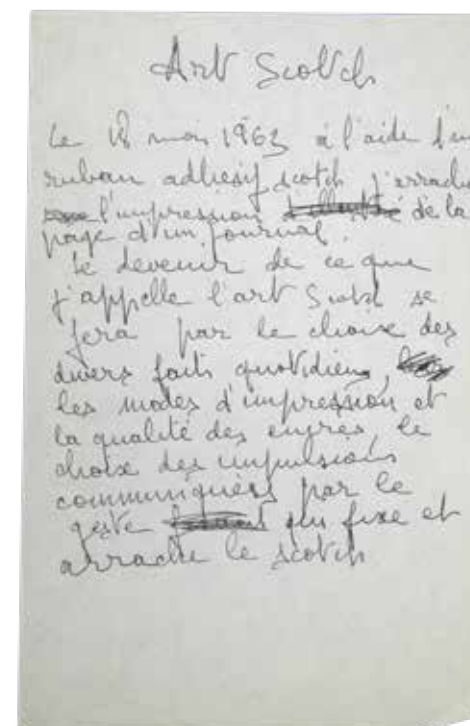 Art Scotch
Le 18 mai 1963 à l'aide d'un
ruban adhésif scotch j'arrache
l'impression de la
page d'un journal.
Le devenir de ce que
j'appelle l'art Scotch se
fera par le choix des
divers faits quotidiens,
les modes d'impression et
la qualité des encres, le
choix des impulsions
communiquées par le
geste qui fixe et
arrache le scotch